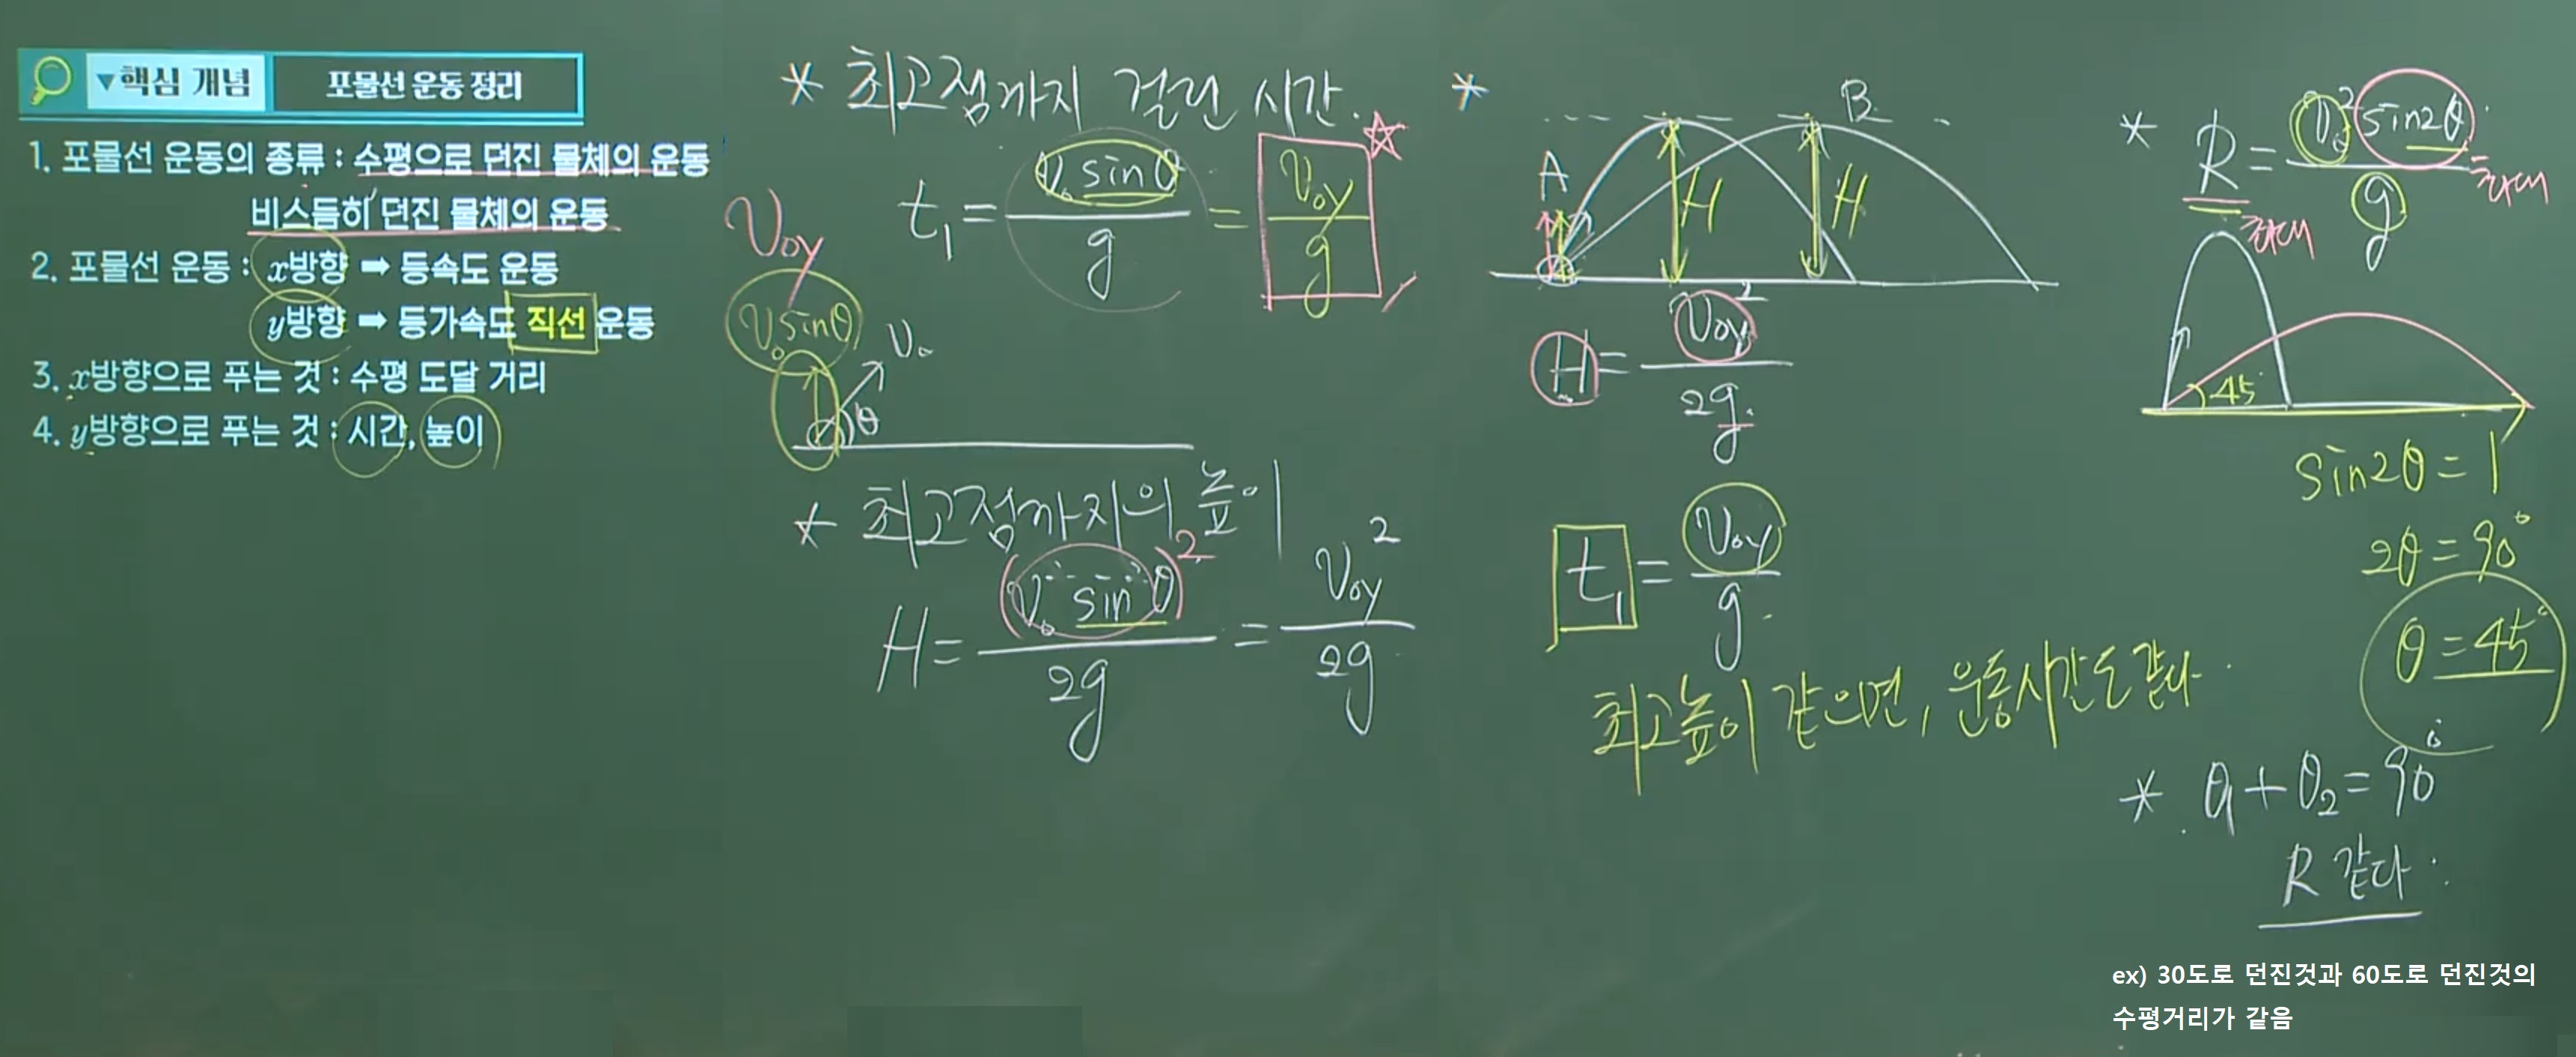 ▼핵심 개념
포물선 운동 정리
1. 포물선 운동의 종류 : 수평으로 던진 물체의 운동
비스듬히 던진 물체의 운동
2. 포물선 운동 : x방향 ➡ 등속도 운동
y방향 ➡ 등가속도 직선 운동
3. x방향으로 푸는 것 : 수평 도달 거리
4. y방향으로 푸는 것 : 시간, 높이
* 최고점까지 걸린 시간.
t₁ = v₀sinθ / g = v₀y / g ☆
v₀y
v₀sinθ
v₀
θ
* 최고점까지의 높이
H = (v₀sinθ)² / 2g = v₀y² / 2g
*
A
B
H
H
H = v₀y² / 2g
t₁ = v₀y / g
최고높이 같으면, 운동시간도 같다.
* R = v₀² sin2θ / g = 최대
최대
45°
sin2θ = 1
2θ = 90°
θ = 45°
* θ₁ + θ₂ = 90°
R 같다.
ex) 30도로 던진것과 60도로 던진것의
수평거리가 같음